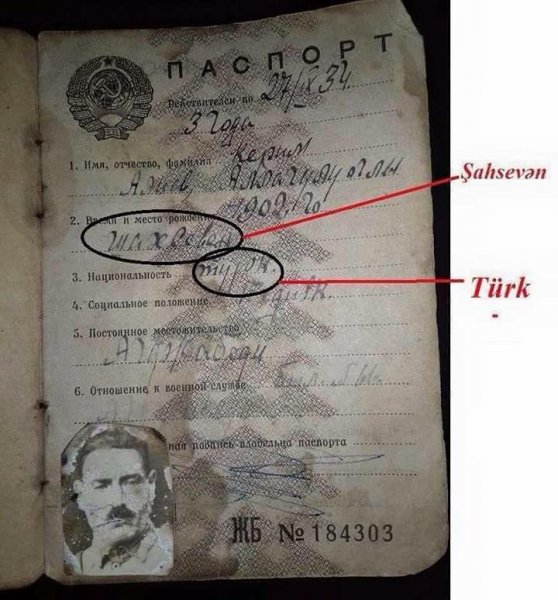 ПАСПОРТ
Действителен по 27/IX 34
3 года
1. Имя, отчество, фамилия Керим
Алиев Аллагулу оглы
2. Время и место рождения 1902 г.
шахсеван
Şahsevən
3. Национальность тюрк.
Türk
-
4. Социальное положение
5. Постоянное местожительство
6. Отношение к военной службе
ная подпись владельца паспорта
ЖБ № 184303